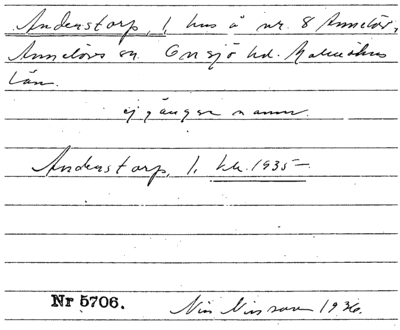 Anderstorp, 1 hus å nr. 8 Annelöv,
Annelövs sn. Onsjö hd. Malmöhus
län.
ej gängse namn.
Anderstorp, 1. kk. 1935 –
Nr 5706.
Nils Nilsson 1936.